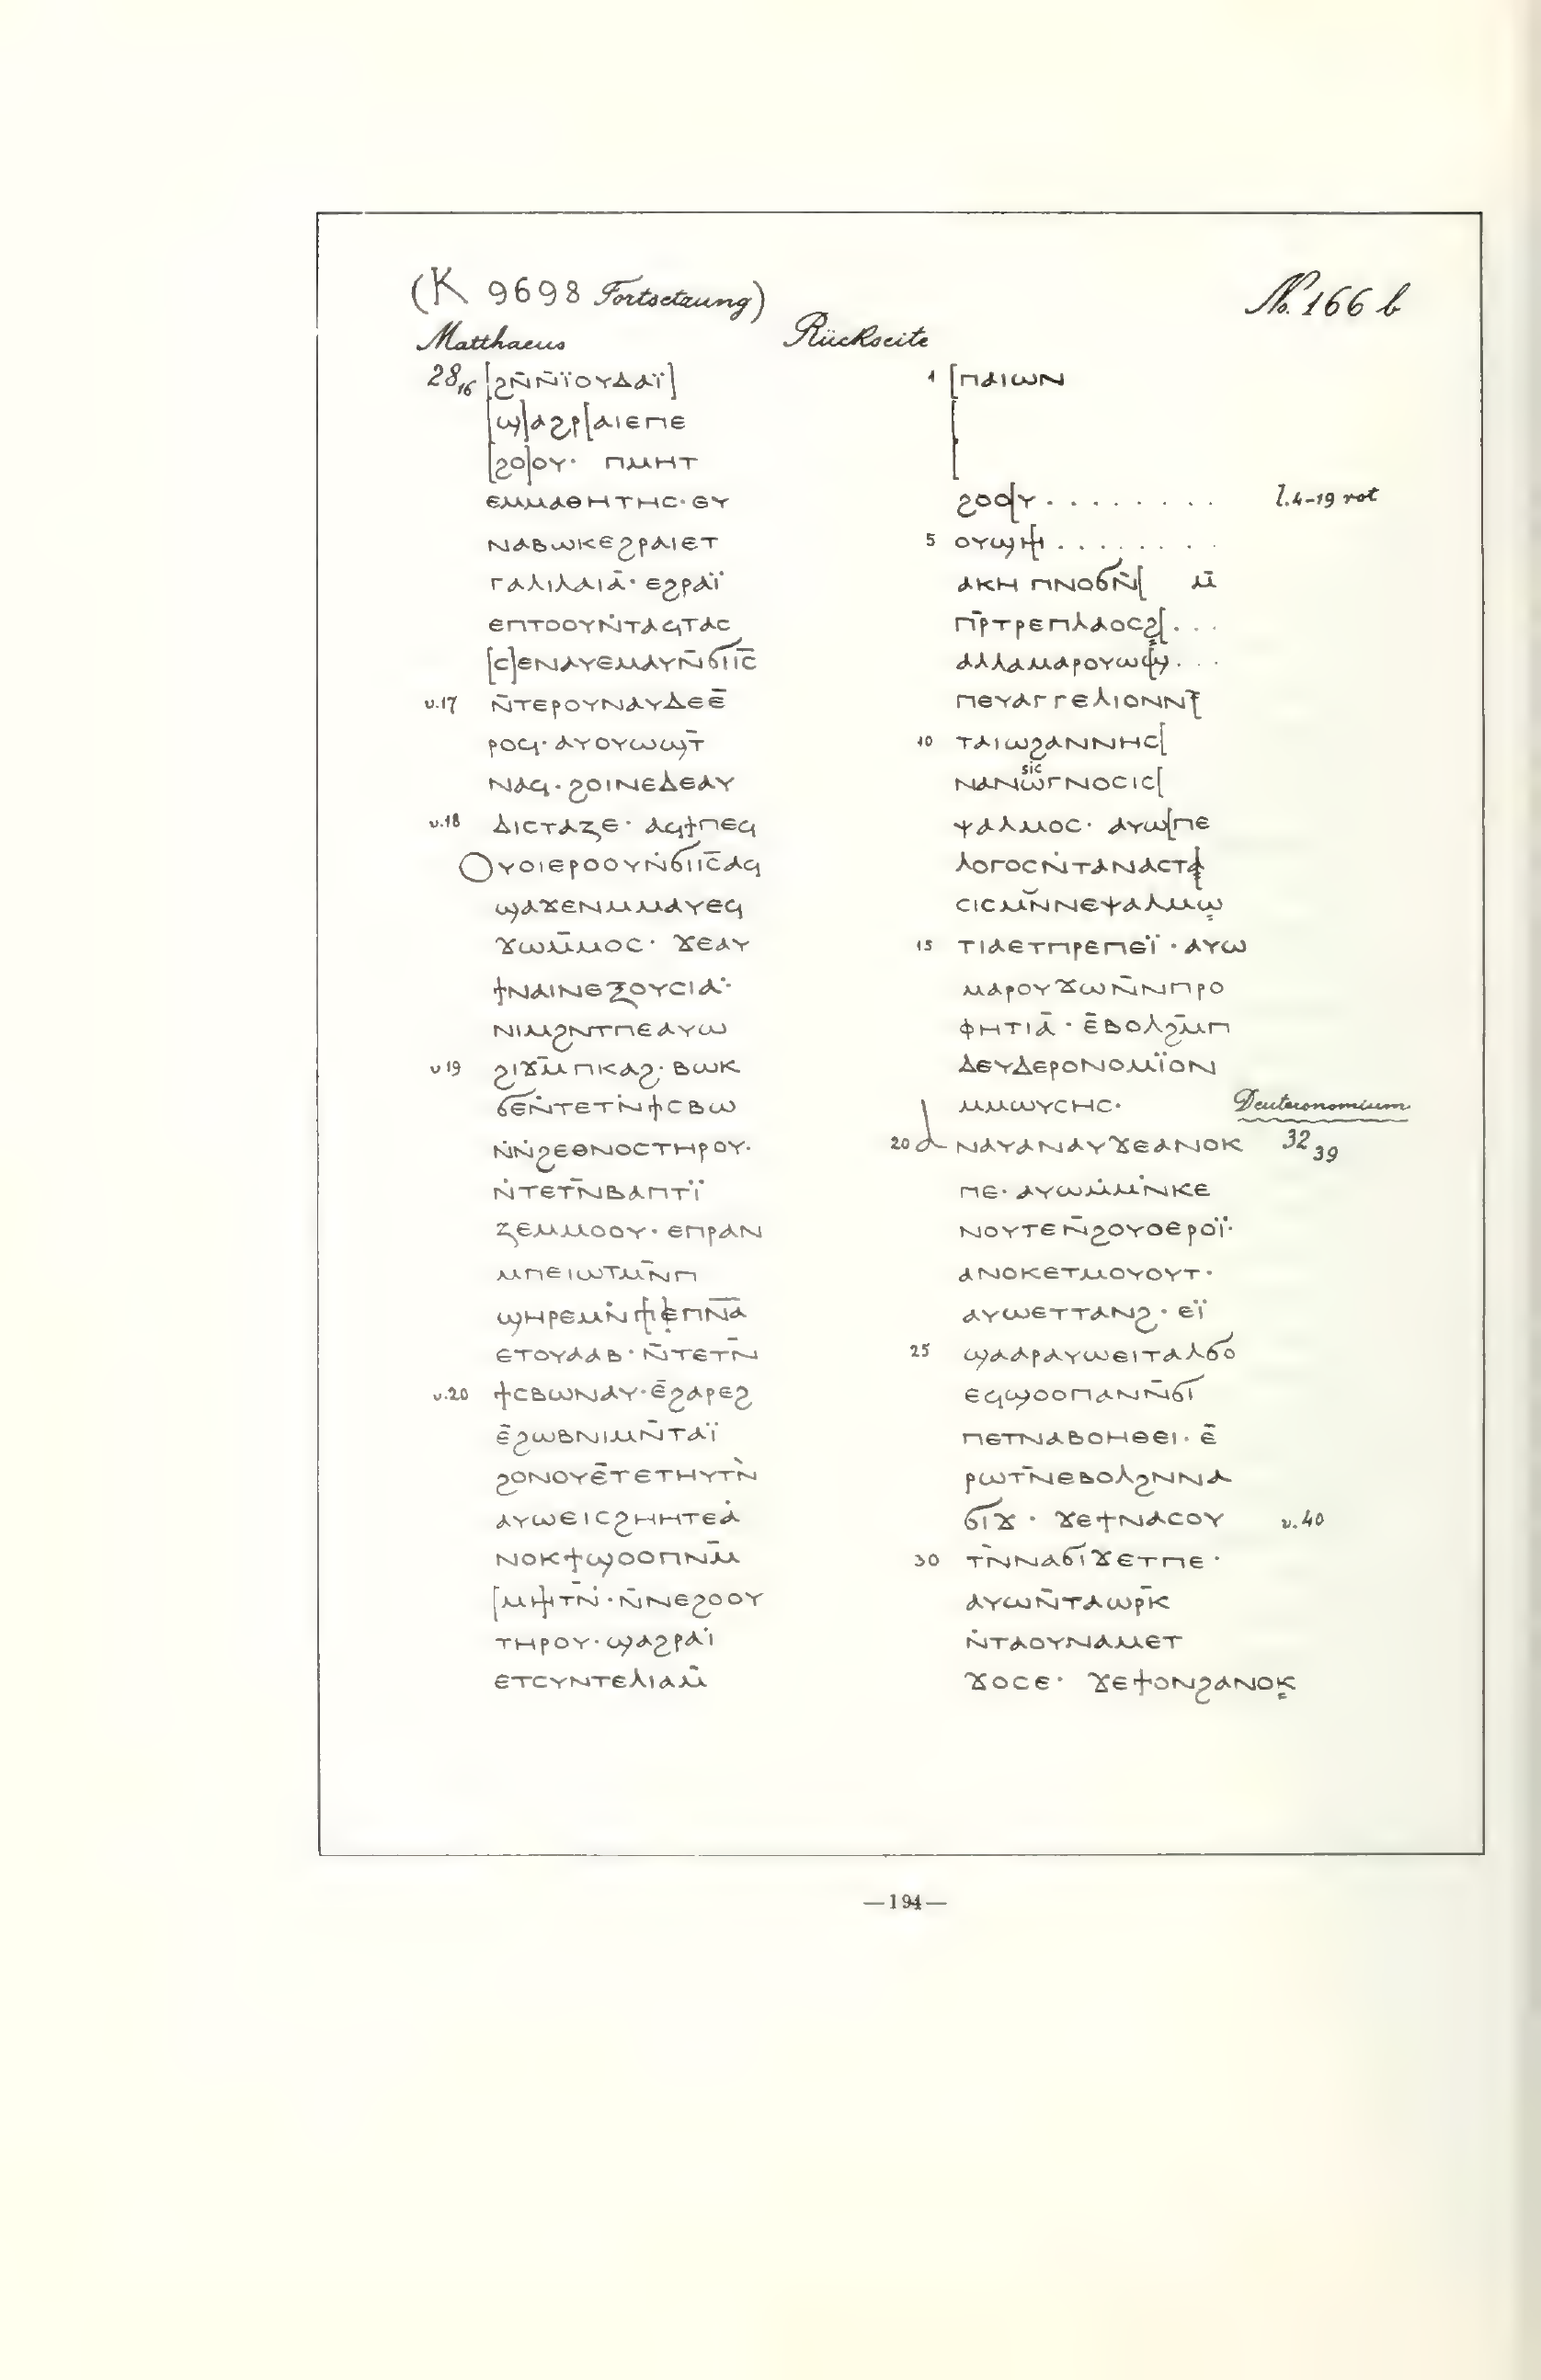 (K 9698 Fortsetzung)
No. 166 b
Matthaeus
Rückseite
28,16 [ϩⲛ̄ⲛ̄ⲓ̈ⲟⲩⲇⲁⲓ̈]
[ϣ]ⲁϩⲣ[ⲁⲓⲉⲡⲉ
[ϩⲟ]ⲟⲩ· ⲡⲙⲏⲧ
ⲉⲙⲙⲁⲑⲏⲧⲏⲥ·ⲉⲩ
ⲛⲁⲃⲱⲕⲉϩⲣⲁⲓⲉⲧ
ⲅⲁⲗⲓⲗⲁⲓⲁ̄· ⲉϩⲣⲁⲓ̈
ⲉⲡⲧⲟⲟⲩⲛ̇ⲧⲁϥⲧⲁⲥ
[ⲥ]ⲉⲛⲁⲩⲉⲙⲁⲩⲛ̄ϭⲓⲓⲥ̄
v.17 ⲛ̄ⲧⲉⲣⲟⲩⲛⲁⲩⲇⲉⲉ̄
ⲣⲟϥ· ⲁⲩⲟⲩⲱϣⲧ̄
ⲛⲁϥ· ϩⲟⲓⲛⲉⲇⲉⲁⲩ
v.18 ⲇⲓⲥⲧⲁⲍⲉ· ⲁϥϯⲡⲉϥ
ⲟⲩⲟⲓⲉⲣⲟⲟⲩⲛ̇ϭⲓⲓⲥ̄ⲁϥ
ϣⲁϫⲉⲛⲙⲙⲁⲩⲉϥ
ϫⲱⲙ̄ⲙⲟⲥ· ϫⲉⲁⲩ
ϯⲛⲁⲓⲛⲉⲝⲟⲩⲥⲓⲁ·
ⲛⲓⲙϩⲛⲧⲡⲉⲁⲩⲱ
v 19 ϩⲓϫⲙ̄ⲡⲕⲁϩ· ⲃⲱⲕ
ϭⲉⲛ̇ⲧⲉⲧⲛ̇ϯⲥⲃⲱ
ⲛ̇ⲛ̇ϩⲉⲑⲛⲟⲥⲧⲏⲣⲟⲩ·
ⲛ̇ⲧⲉⲧⲛ̄ⲃⲁⲡⲧⲓ̈
ⲍⲉⲙⲙⲟⲟⲩ· ⲉⲡⲣⲁⲛ
ⲙⲡⲉⲓⲱⲧⲙⲛ̄ⲡ
ϣⲏⲣⲉⲙⲛ̇ⲡ[ⲉ]ⲡⲛ̄ⲁ̄
ⲉⲧⲟⲩⲁⲁⲃ· ⲛ̄ⲧⲉⲧⲛ̄
v.20 ϯⲥⲃⲱⲛⲁⲩ·ⲉ̄ϩⲁⲣⲉϩ
ⲉ̄ϩⲱⲃⲛⲓⲙⲛ̄ⲧⲁⲓ̈
ϩⲟⲛⲟⲩⲉ̄ⲧⲉⲧⲏⲩⲧⲛ̀
ⲁⲩⲱⲉⲓⲥϩⲏⲏⲧⲉⲁ̇
ⲛⲟⲕϯϣⲟⲟⲡⲛⲙ̄
[ⲙⲏ]ⲧⲛ̄· ⲛ̄ⲛⲉϩⲟⲟⲩ
ⲧⲏⲣⲟⲩ· ϣⲁϩⲣⲁⲓ̈
ⲉⲧⲥⲩⲛⲧⲉⲗⲓⲁⲙ̄
1 [ⲡⲁⲓⲱⲛ
[
ϩⲟⲟ[ⲩ . . . . . . . . l.4-19 rot
5 ⲟⲩϣⲏ[ . . . . . . .
ⲁⲕⲏ ⲡⲛⲟϭⲛ̄[ ⲙ̄
ⲡⲣ̄ⲧⲣⲉⲡⲗⲁⲟⲥϩ[ . . .
ⲁⲗⲗⲁⲙⲁⲣⲟⲩⲱ[ϣ . . .
ⲡⲉⲩⲁⲅⲅⲉⲗⲓⲟⲛⲛ[
10 ⲧⲁⲓⲱϩⲁⲛⲛⲏⲥ[
sic
ⲛⲁⲛⲱⲅⲛⲟⲥⲓⲥ[
ⲯⲁⲗⲙⲟⲥ· ⲁⲩⲱ[ⲡⲉ
ⲗⲟⲅⲟⲥⲛ̇ⲧⲁⲛⲁⲥⲧⲁ
ⲥⲓⲥⲙⲛ̄ⲛⲉⲯⲁⲗⲙⲱ
15 ⲧⲓⲁⲉⲧⲡⲣⲉⲡⲉⲓ̈· ⲁⲩⲱ
ⲙⲁⲣⲟⲩϫⲱⲛ̄ⲛⲡⲣⲟ
ⲫⲏⲧⲓⲁ̄· ⲉ̄ⲃⲟⲗϩ̄ⲙⲡ
ⲇⲉⲩⲇⲉⲣⲟⲛⲟⲙⲓ̈ⲟⲛ
ⲙⲙⲱⲩⲥⲏⲥ· Deuteronomium
20 ⲛⲁⲩⲁⲛⲁⲩϫⲉⲁⲛⲟⲕ 32 39
ⲡⲉ· ⲁⲩⲱⲙ̇ⲙⲛ̇ⲕⲉ
ⲛⲟⲩⲧⲉⲛ̄ϩⲟⲩⲟⲉⲣⲟⲓ̈·
ⲁⲛⲟⲕⲉⲧⲙⲟⲩⲟⲩⲧ·
ⲁⲩⲱⲉⲧⲧⲁⲛϩ· ⲉⲓ̈
25 ϣⲁⲁⲣⲁⲩⲱⲉⲓⲧⲁⲗϭⲟ
ⲉϥϣⲟⲟⲡⲁⲛⲛ̄ϭⲓ
ⲡⲉⲧⲛⲁⲃⲟⲏⲑⲉⲓ· ⲉ̄
ⲣⲱⲧⲛ̄ⲉⲃⲟⲗϩⲛⲛⲁ
ϭⲓϫ· ϫⲉϯⲛⲁⲥⲟⲩ v.40
30 ⲧⲛ̀ⲛⲁϭⲓϫⲉⲧⲡⲉ·
ⲁⲩⲱⲛ̄ⲧⲁⲱⲣⲕ̄
ⲛ̇ⲧⲁⲟⲩⲛⲁⲙⲉⲧ
ϫⲟⲥⲉ· ϫⲉϯⲟⲛϩⲁⲛⲟⲕ
—194—